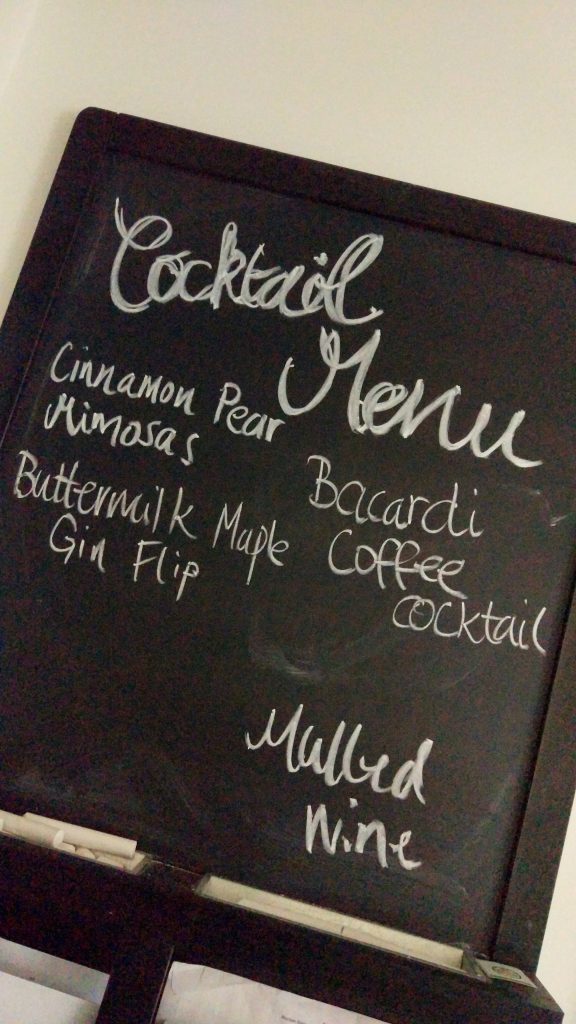 Cocktail
Menu
Cinnamon Pear
Mimosas
Buttermilk Maple
Gin Flip
Bacardi
Coffee
Cocktail
Mulled
Wine